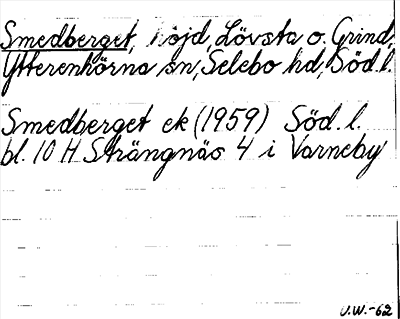 Smedberget, höjd, Lövsta o. Grind,
Ytterenhörna sn, Selebo hd, Söd. l.
Smedberget ek (1959) Söd. l.
bl. 10 H Strängnäs 4 i Varneby
U.W.-62